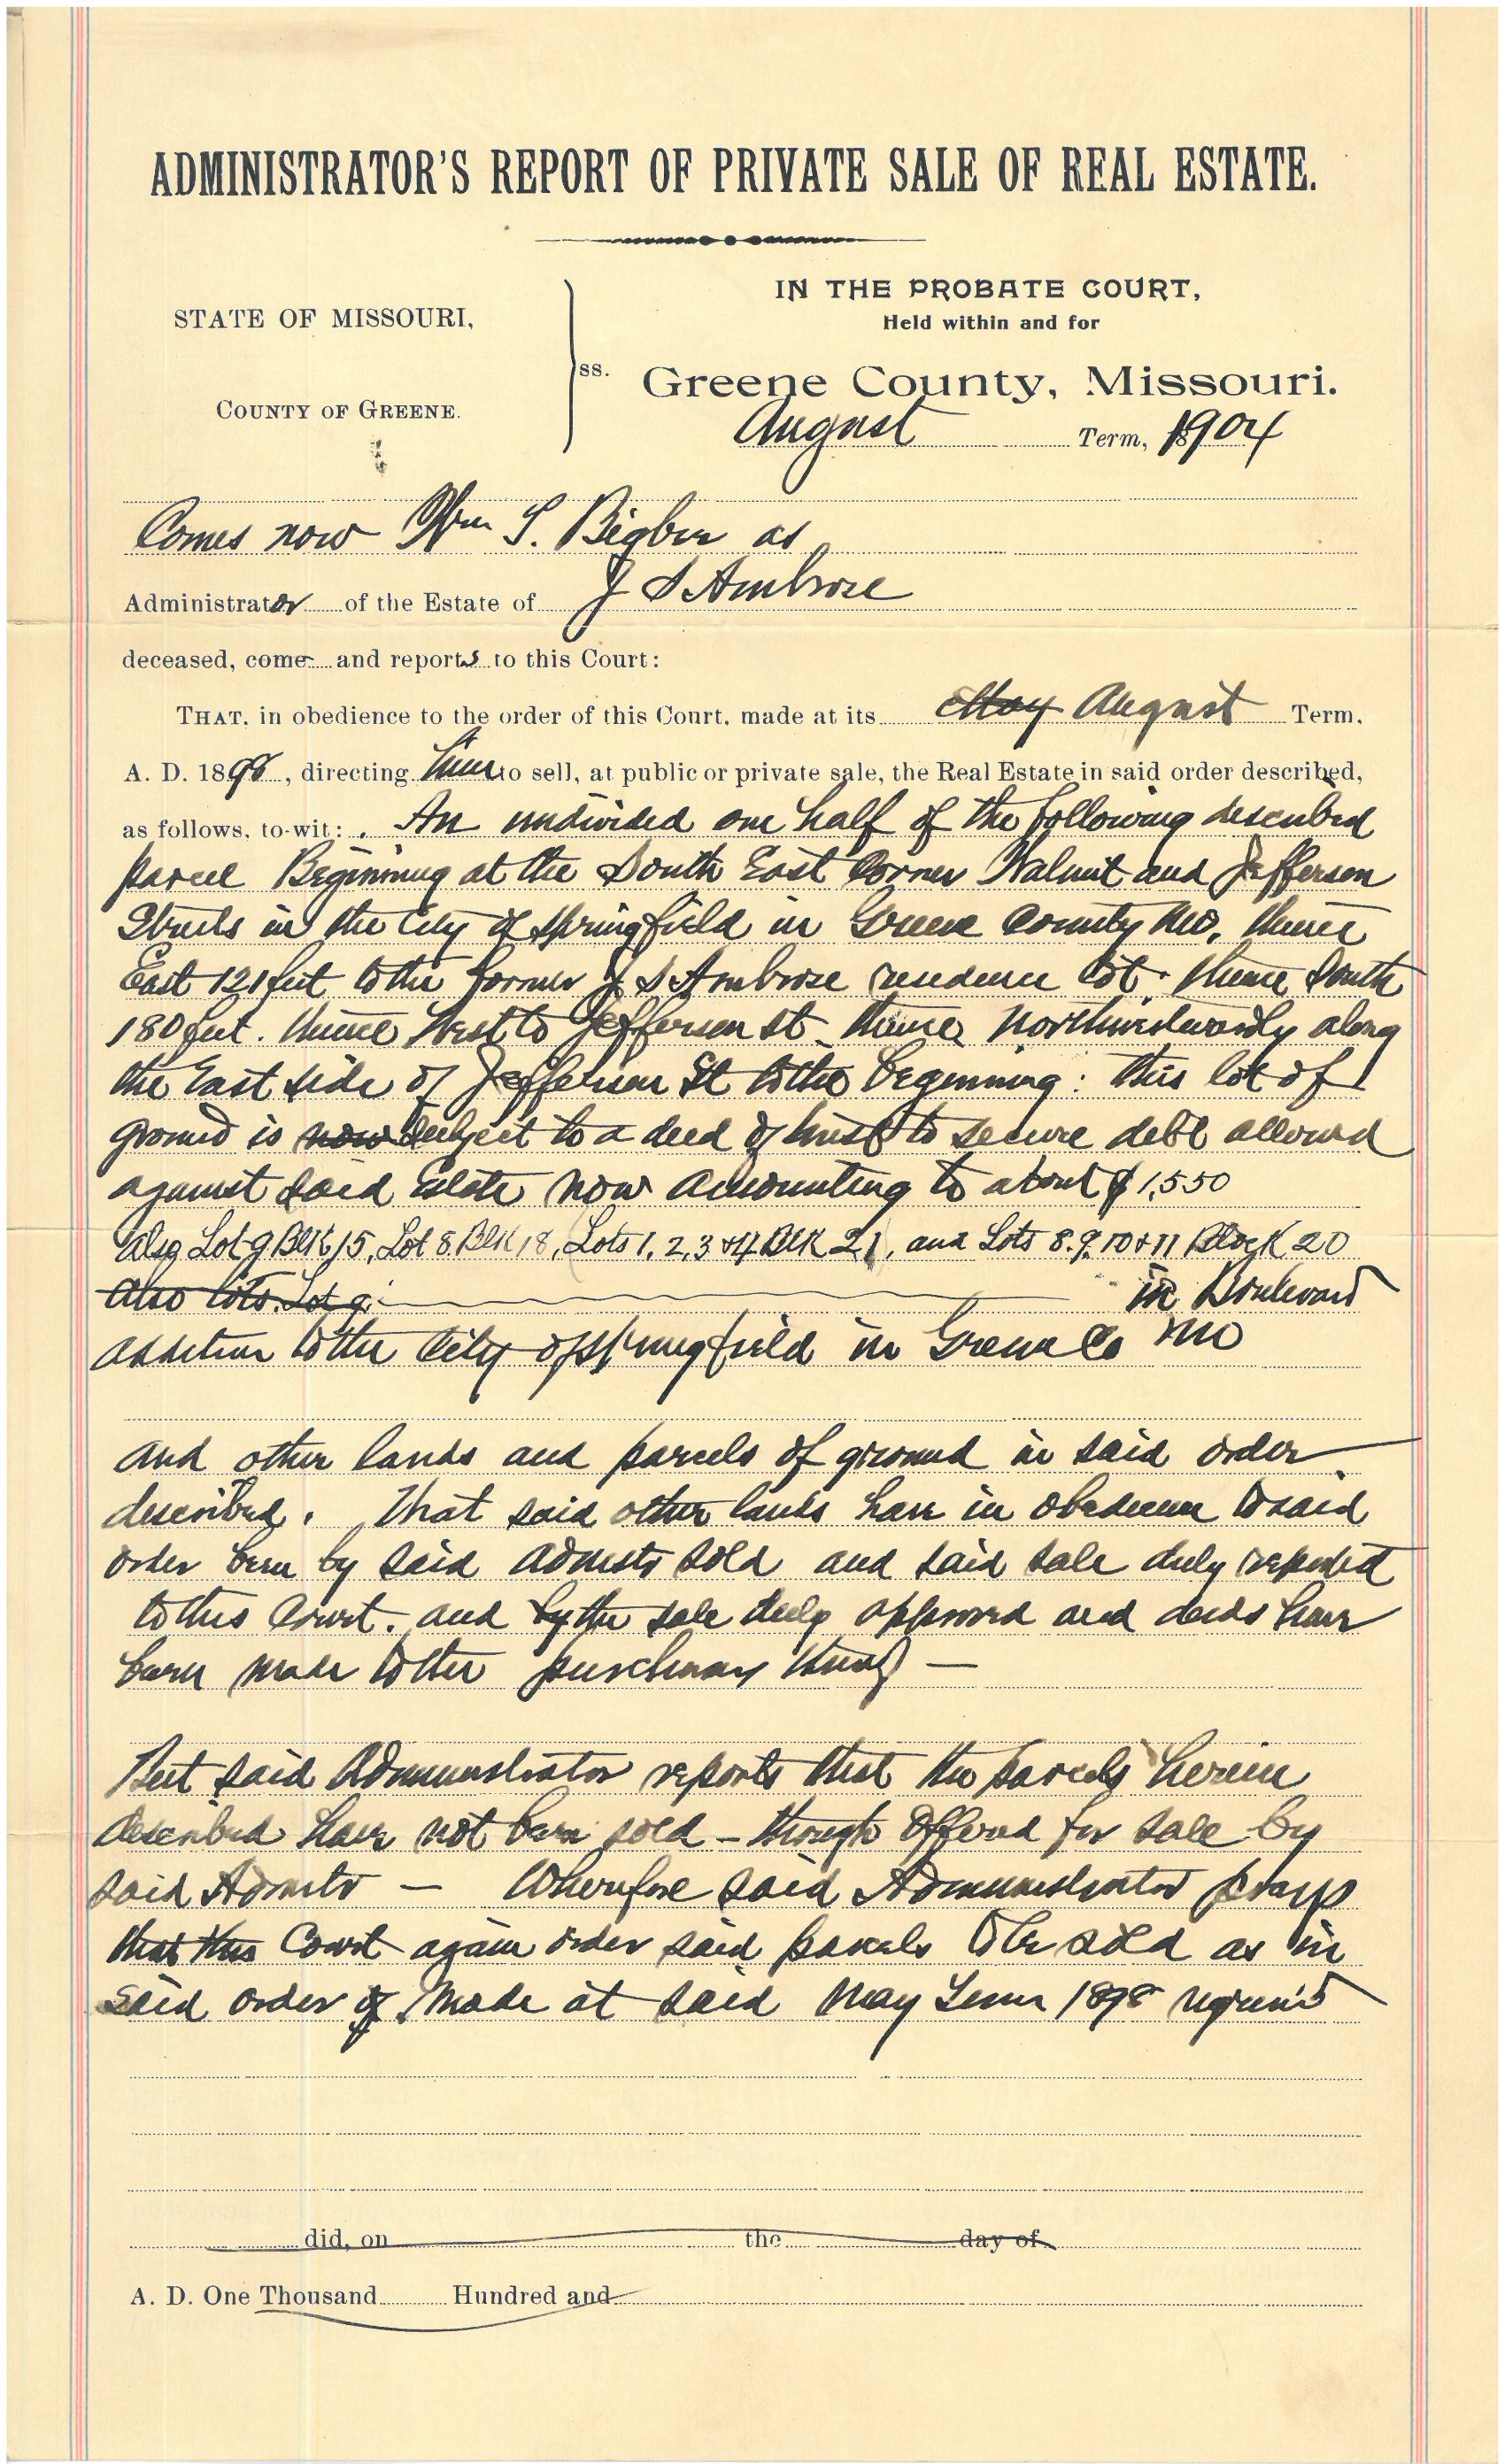 ADMINISTRATOR'S REPORT OF PRIVATE SALE OF REAL ESTATE.
STATE OF MISSOURI,
COUNTY OF GREENE.
ss.
IN THE PROBATE COURT,
Held within and for
Greene County, Missouri.
August Term, 1904
Comes now Wm S. Bigbee as
Administrator of the Estate of J S Ambrose
deceased, come and reports to this Court:
THAT, in obedience to the order of this Court, made at its May August Term,
A. D. 1898, directing him to sell, at public or private sale, the Real Estate in said order described,
as follows, to-wit: An undivided one half of the following described
parcel Beginning at the South East Corner Walnut and Jefferson
Streets in the City of Springfield in Greene County Mo, thence
East 121 feet to the former J S Ambrose residence lot. thence South
180 feet. thence West to Jefferson st thence Northwestwardly along
the East side of Jefferson St to the beginning: this lot of
ground is now subject to a deed of trust to secure debt allowed
against said Estate now amounting to about $1,550
Also Lot 9 Blk 15, Lot 8. Blk 18, (Lots 1, 2, 3 & 4 Blk 21), and Lots 8. 9. 10 & 11 Block 20
Also lots. Lot 9. in Boulevard
addition to the City of Springfield in Greene Co Mo
and other lands and parcels of ground in said order
described. That said other lands have in obedience to said
order been by said Admstr sold and said sale duly reported
to this Court. and by the sale duly approved and deeds have
been made to the purchasers
But said Administrator reports that the parcels herein
described have not been sold - though offered for sale by
said Admstr — Wherefore said Administrator prays
that this Court again order said parcels to be sold as in
said order of made at said May Term 1898 requir'd
did, on the day of
A. D. One Thousand Hundred and